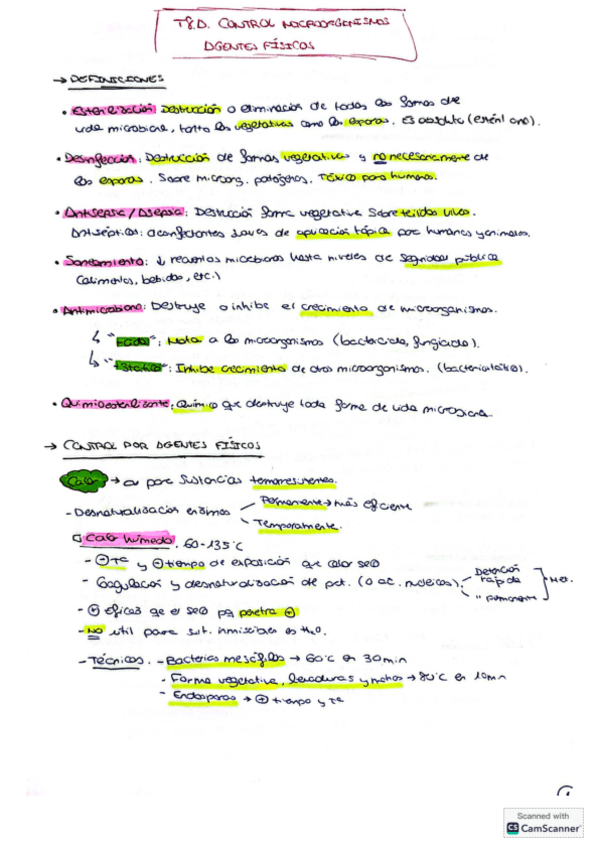 T8.D. CONTROL MICROORGANISMOS
AGENTES FÍSICOS
→ DEFINICIONES
• Esterilización: Destrucción o eliminación de todas las formas de
vida microbiana, tanto las vegetativas como las esporas. Es absoluto (estéril o no).
• Desinfección: Destrucción de formas vegetativas y no necesariamente de
las esporas. Sobre microorg. patógenos. Tóxico para humanos.
• Antisepsia / Asepsia: Destrucción forma vegetativa sobre tejidos vivos.
Antisépticos: desinfectantes suaves de aplicación tópica para humanos y animales.
• Saneamiento: ↓ recuentos microbianos hasta niveles de seguridad pública
(alimentos, bebidas, etc.)
• Antimicrobiano: Destruye o inhibe el crecimiento de microorganismos.
↳ "cida": Mata a los microorganismos (bactericida, fungicida).
↳ "stático": Inhibe crecimiento de otros microorganismos. (bacteriostático).
• Quimioesterilizante: Químico que destruye toda forma de vida microbiana.
→ CONTROL POR AGENTES FÍSICOS
Calor → para sustancias termorresistentes.
- Desnaturalización enzimas
Permanente → más eficiente
Temporalmente.
Calor húmedo. 60-135°C
- ⊖ Tª y ⊖ tiempo de exposición que calor seco
- Coagulación y desnaturalización de prot. (o ac. nucleicos)
Detención rápida
" permanente
Met.
- ⊕ eficaz que el seco pq penetra ⊕
- NO útil para sust. inmiscibles en H₂O.
- Técnicas. - Bacterias mesófilas → 60°C en 30min
- Forma vegetativa, levaduras y mohos → 80°C en 10min
- Endosporas → ⊕ tiempo y Tª
1
Scanned with
CS CamScanner